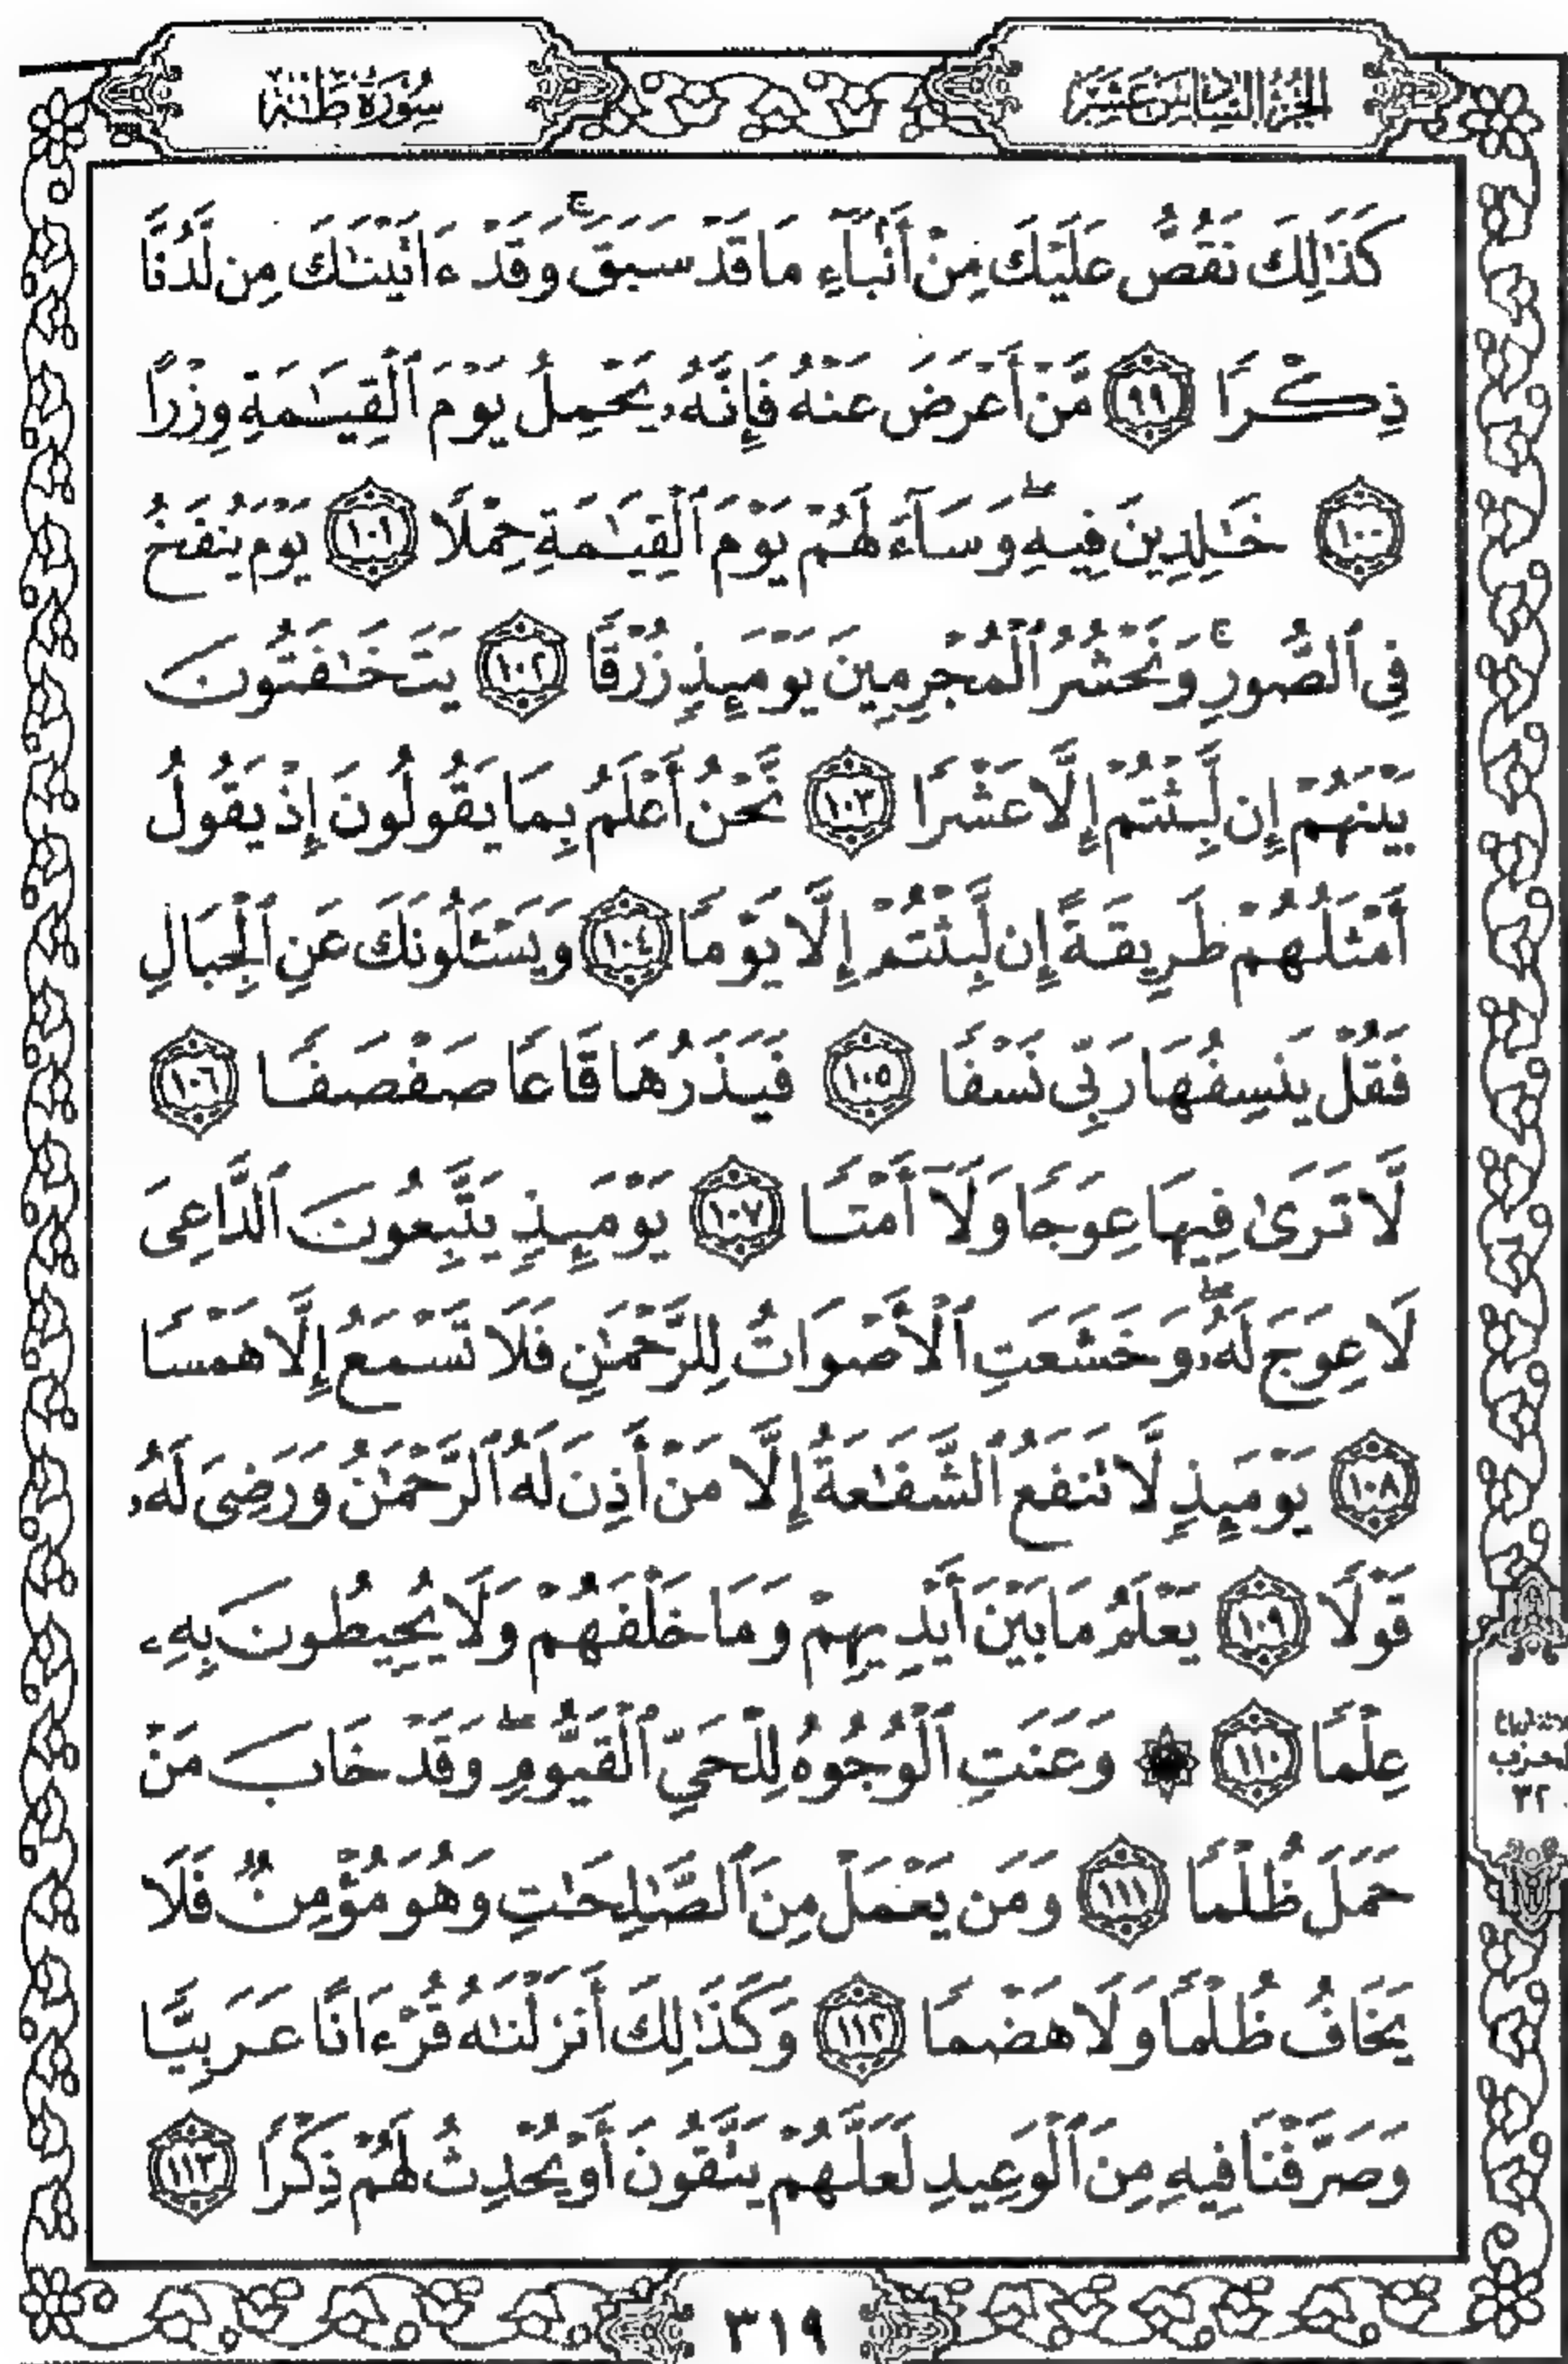 الجزء السادس عشر
سورة طه
كَذَٰلِكَ نَقُصُّ عَلَيْكَ مِنْ أَنۢبَآءِ مَا قَدْ سَبَقَ ۚ وَقَدْ ءَاتَيْنَـٰكَ مِن لَّدُنَّا
ذِكْرًا ٩٩ مَّنْ أَعْرَضَ عَنْهُ فَإِنَّهُۥ يَحْمِلُ يَوْمَ ٱلْقِيَـٰمَةِ وِزْرًا
١٠٠ خَـٰلِدِينَ فِيهِ ۖ وَسَآءَ لَهُمْ يَوْمَ ٱلْقِيَـٰمَةِ حِمْلًا ١٠١ يَوْمَ يُنفَخُ
فِى ٱلصُّورِ ۚ وَنَحْشُرُ ٱلْمُجْرِمِينَ يَوْمَئِذٍ زُرْقًا ١٠٢ يَتَخَـٰفَتُونَ
بَيْنَهُمْ إِن لَّبِثْتُمْ إِلَّا عَشْرًا ١٠٣ نَّحْنُ أَعْلَمُ بِمَا يَقُولُونَ إِذْ يَقُولُ
أَمْثَلُهُمْ طَرِيقَةً إِن لَّبِثْتُمْ إِلَّا يَوْمًا ١٠٤ وَيَسْـَٔلُونَكَ عَنِ ٱلْجِبَالِ
فَقُلْ يَنسِفُهَا رَبِّى نَسْفًا ١٠٥ فَيَذَرُهَا قَاعًا صَفْصَفًا ١٠٦
لَّا تَرَىٰ فِيهَا عِوَجًا وَلَآ أَمْتًا ١٠٧ يَوْمَئِذٍ يَتَّبِعُونَ ٱلدَّاعِىَ
لَا عِوَجَ لَهُۥ ۖ وَخَشَعَتِ ٱلْأَصْوَاتُ لِلرَّحْمَـٰنِ فَلَا تَسْمَعُ إِلَّا هَمْسًا
١٠٨ يَوْمَئِذٍ لَّا تَنفَعُ ٱلشَّفَـٰعَةُ إِلَّا مَنْ أَذِنَ لَهُ ٱلرَّحْمَـٰنُ وَرَضِىَ لَهُۥ
قَوْلًا ١٠٩ يَعْلَمُ مَا بَيْنَ أَيْدِيهِمْ وَمَا خَلْفَهُمْ وَلَا يُحِيطُونَ بِهِۦ
عِلْمًا ١١٠ ۞ وَعَنَتِ ٱلْوُجُوهُ لِلْحَىِّ ٱلْقَيُّومِ ۖ وَقَدْ خَابَ مَنْ
حَمَلَ ظُلْمًا ١١١ وَمَن يَعْمَلْ مِنَ ٱلصَّـٰلِحَـٰتِ وَهُوَ مُؤْمِنٌ فَلَا
يَخَافُ ظُلْمًا وَلَا هَضْمًا ١١٢ وَكَذَٰلِكَ أَنزَلْنَـٰهُ قُرْءَانًا عَرَبِيًّا
وَصَرَّفْنَا فِيهِ مِنَ ٱلْوَعِيدِ لَعَلَّهُمْ يَتَّقُونَ أَوْ يُحْدِثُ لَهُمْ ذِكْرًا ١١٣
٣٢
٣١٩